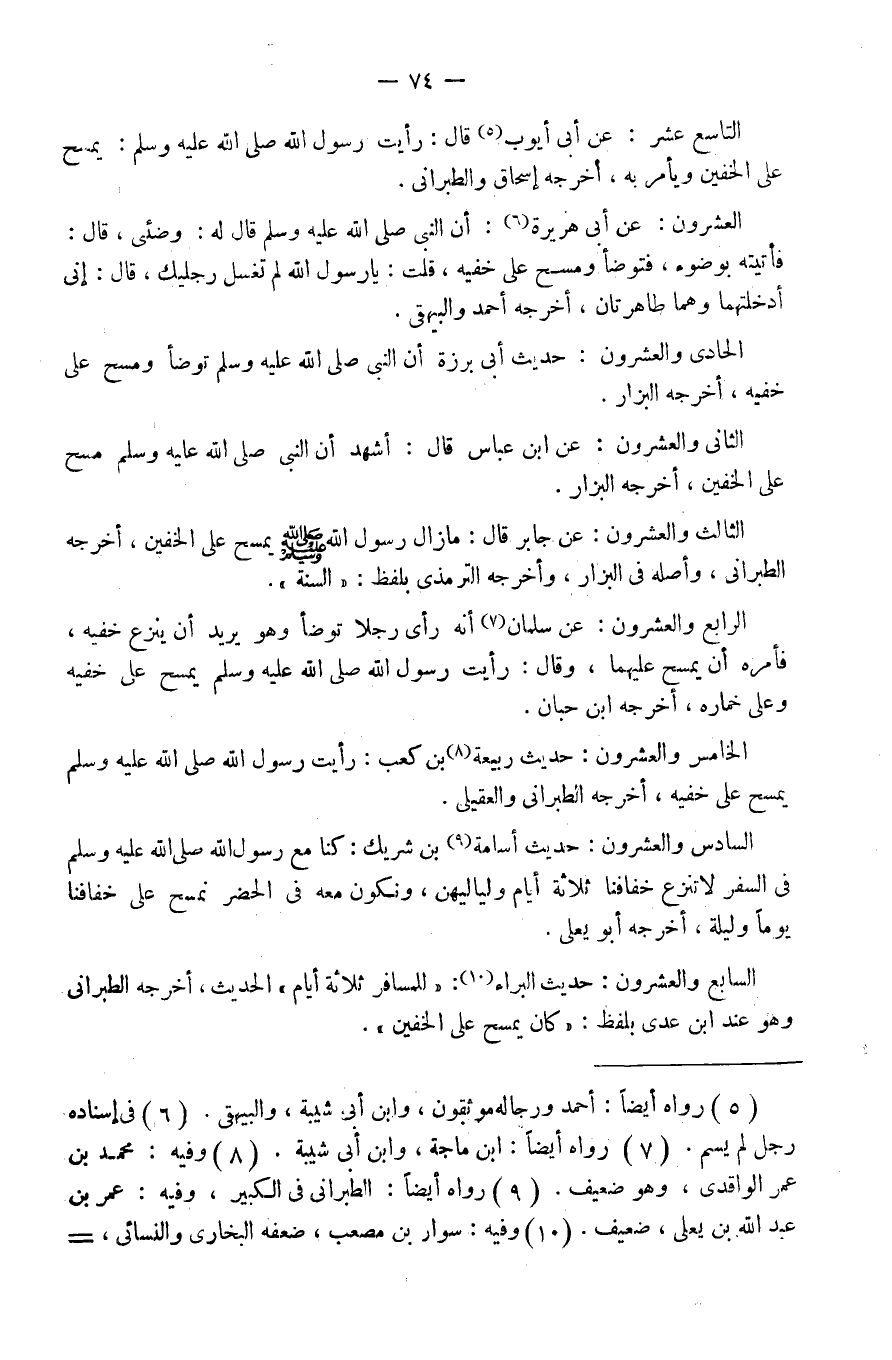 — ٧٤ —
التاسع عشر : عن أبى أيوب(٥) قال : رأيت رسول الله صلى الله عليه وسلم : يمسح
على الخفين ويأمر به ، أخرجه إسحاق والطبرانى .
العشرون : عن أبى هريرة(٦) : أن النبى صلى الله عليه وسلم قال له : وضئى ، قال :
فأتيته بوضوء ، فتوضأ ومسح على خفيه ، قلت : يارسول الله لم تغسل رجليك ، قال : إنى
أدخلتهما وهما طاهرتان ، أخرجه أحمد والبيهقى .
الحادى والعشرون : حديث أبى برزة أن النبى صلى الله عليه وسلم توضأ ومسح على
خفيه ، أخرجه البزار .
الثانى والعشرون : عن ابن عباس قال : أشهد أن النبى صلى الله عليه وسلم مسح
على الخفين ، أخرجه البزار .
الثالث والعشرون : عن جابر قال : مازال رسول الله ﷺ يمسح على الخفين ، أخرجه
الطبرانى ، وأصله فى البزار ، وأخرجه الترمذى بلفظ : « السنة » .
الرابع والعشرون : عن سلمان(٧) أنه رأى رجلا توضأ وهو يريد أن ينزع خفيه ،
فأمره أن يمسح عليهما ، وقال : رأيت رسول الله صلى الله عليه وسلم يمسح على خفيه
وعلى خماره ، أخرجه ابن حبان .
الخامس والعشرون : حديث ربيعة(٨) بن كعب : رأيت رسول الله صلى الله عليه وسلم
يمسح على خفيه ، أخرجه الطبرانى والعقيلى .
السادس والعشرون : حديث أسامة(٩) بن شريك : كنا مع رسول الله صلى الله عليه وسلم
فى السفر لاتنزع خفافنا ثلاثة أيام ولياليهن ، ونكون معه فى الحضر نمسح على خفافنا
يوماً وليلة ، أخرجه أبو يعلى .
السابع والعشرون : حديث البراء(١٠) : « للمسافر ثلاثة أيام » الحديث ، أخرجه الطبرانى
وهو عند ابن عدى بلفظ : « كان يمسح على الخفين » .
( ٥ ) رواه أيضاً : أحمد ورجاله موثقون ، وابن أبى شيبة ، والبيهقى . ( ٦ ) فى إسناده
رجل لم يسم . ( ٧ ) رواه أيضاً : ابن ماجة ، وابن أبى شيبة . ( ٨ ) وفيه : محمد بن
عمر الواقدى ، وهو ضعيف . ( ٩ ) رواه أيضاً : الطبرانى فى الكبير ، وفيه : عمر بن
عبد الله بن يعلى ، ضعيف . ( ١٠ ) وفيه : سوار بن مصعب ، ضعفه البخارى والنسائى ، =